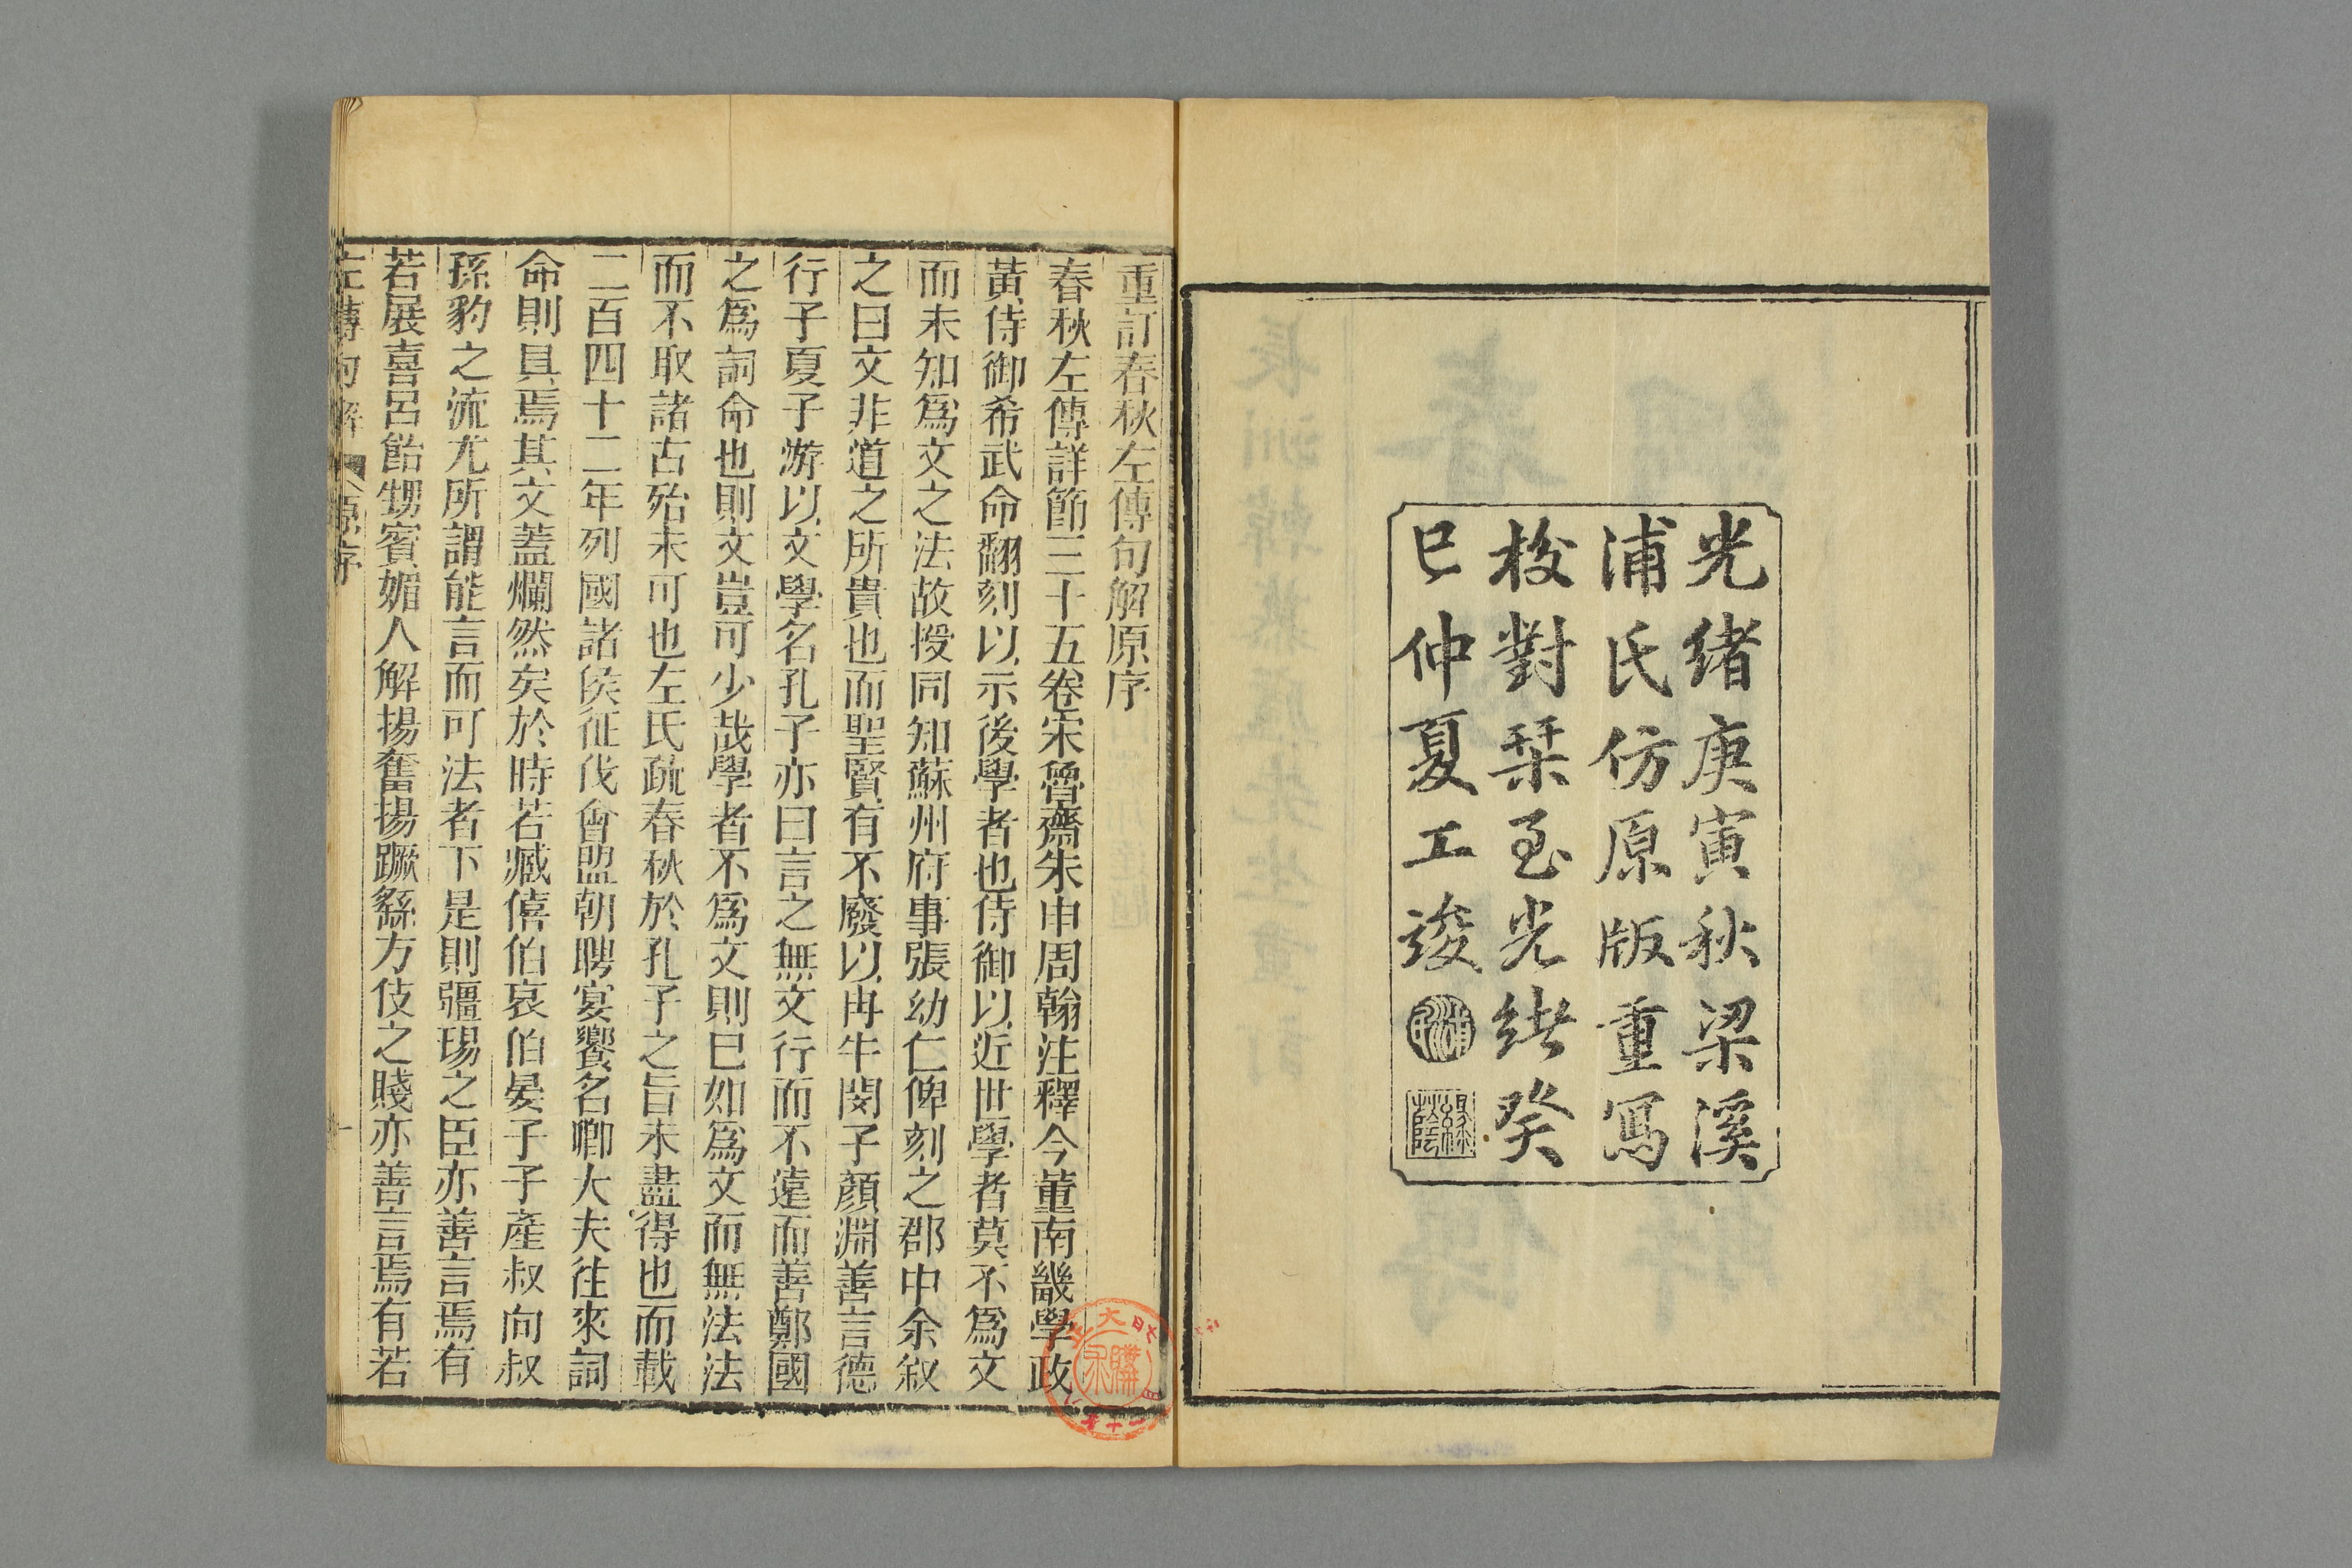 光緒庚寅秋梁溪
浦氏仿原版重寫
校對栞至光緒癸
巳仲夏工竣
重訂春秋左傳句解原序
春秋左傳詳節三十五卷宋魯齋朱申周翰注釋今董南畿學政
黃侍御希武命翻刻以示後學者也侍御以近世學者莫不爲文
而未知爲文之法故授同知蘇州府事張幼仁俾刻之郡中余叙
之曰文非道之所貴也而聖賢有不廢以冉牛閔子顏淵善言德
行子夏子游以文學名孔子亦曰言之無文行而不遠而善鄭國
之爲詞命也則文豈可少哉學者不爲文則已如爲文而無法法
而不取諸古殆未可也左氏疏春秋於孔子之旨未盡得也而載
二百四十二年列國諸侯征伐會盟朝聘宴饗名卿大夫往來詞
命則具焉其文蓋爛然矣於時若臧僖伯哀伯晏子子產叔向叔
孫豹之流尤所謂能言而可法者下是則疆埸之臣亦善言焉有
若展喜呂飴甥賓媚人解揚奮揚蹶繇方伎之賤亦善言焉有若
左傳句解 原序 一